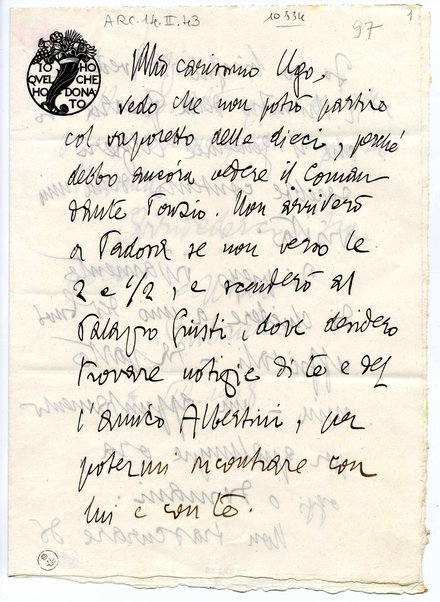 ARC. 14. II. 43
10334
97
1
IO HO
QVEL CHE
HO DONA
TO
Mio carissimo Ugo,
vedo che non potrò partire
col vaporetto delle dieci, perché
debbo ancóra vedere il Coman
dante Ponzio. Non arriverò
a Padova se non verso le
2 e 1/2, e scenderò al
Palazzo Giusti, dove desidero
trovare notizie di te e del
l'amico Albertini, per
potermi incontrare con
lui e con te.